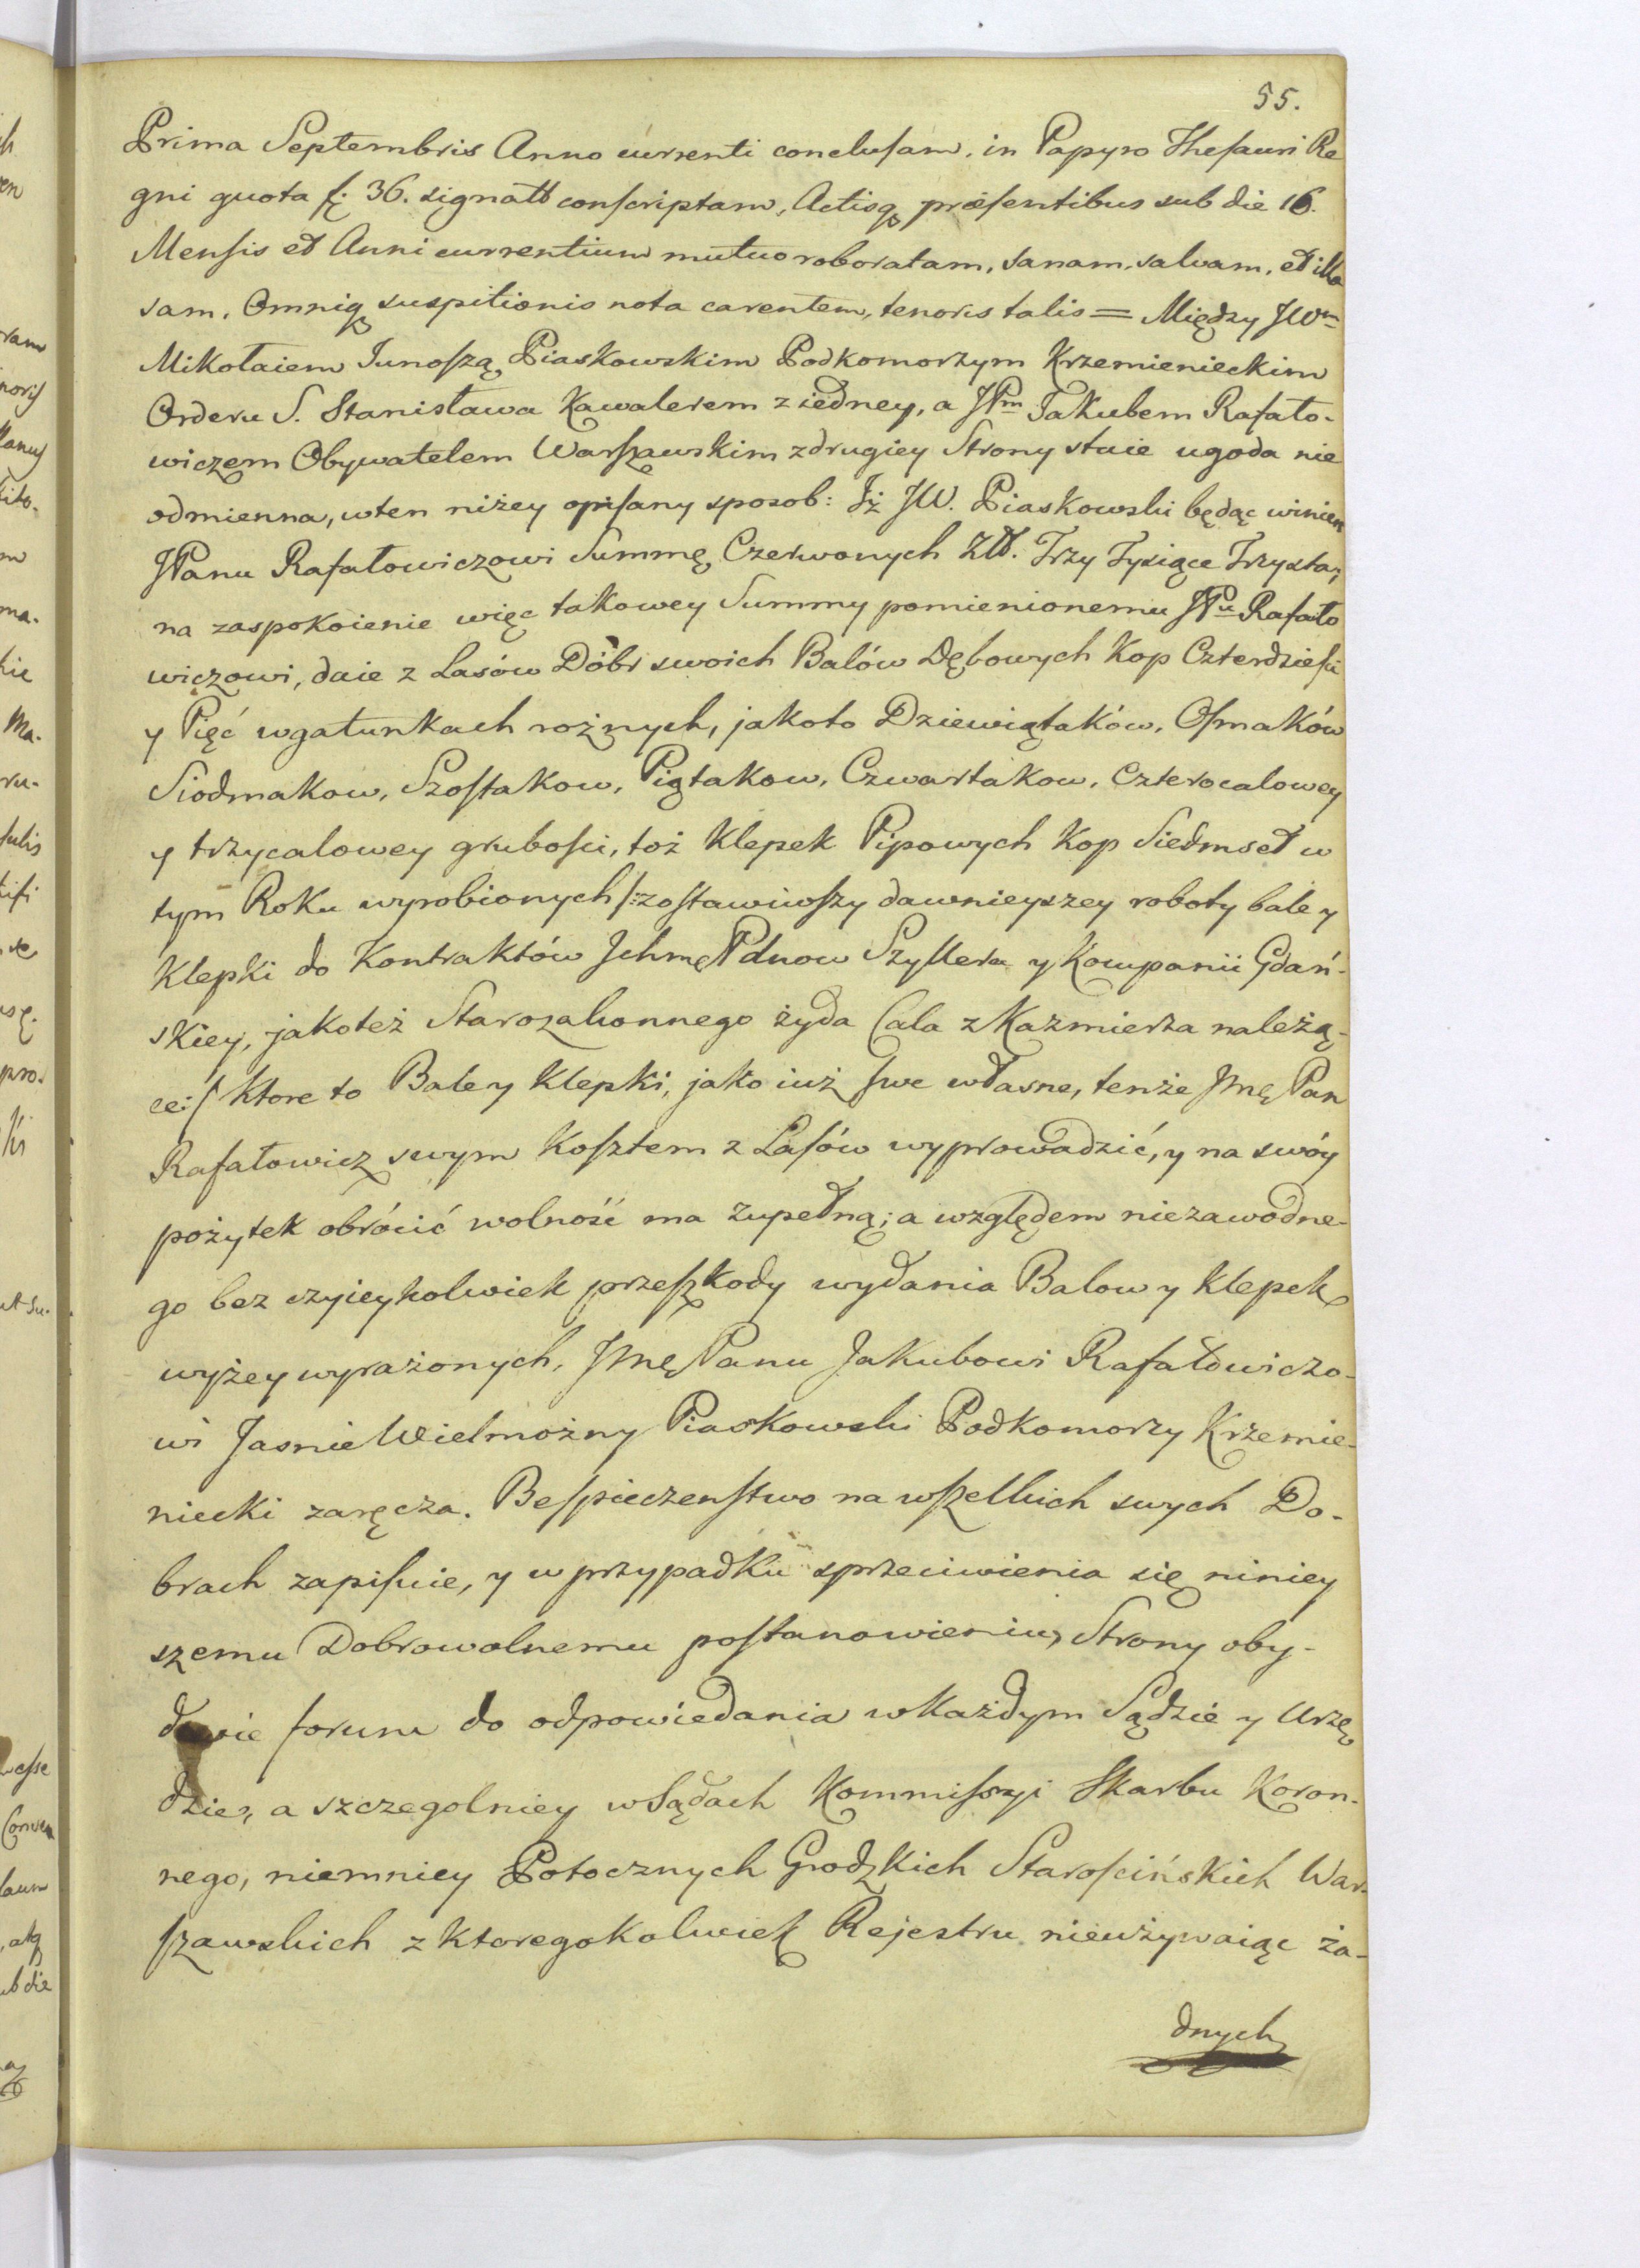 55.
Prima Septembris Anno currenti conclusam, in Papyro Thesauri Re
gni quota f: 36. signatt conscriptam, Actisq præsentibus sub die 16.
Mensis et Anni currentium mutuo roboratam, sanam, salvam, et illæ
sam, Omniq suspitionis nota carentem, tenoris talis = Między JWm
Mikołaiem Junoszą Piaskowskim Podkomorzym Krzemienieckim
Orderu S. Stanisława Kawalerem z iedney, a JPm Jakubem Rafało-
wiczem Obywatelem Warszawskim z drugiey Strony staie ugoda nie
odmienna, w ten niżey opisany sposob: Iż JW. Piaskowski będąc winien
JPanu Rafałowiczowi Summę Czerwonych Złł. Trzy Tysiące Trzysta,
na zaspokoienie więc takowey Summy pomienionemu JPu Rafało
wiczowi, daie z Lasów Dóbr swoich Balów Dębowych Kop Czterdzieści
y Pięć w gatunkach rożnych, jakoto Dziewiątaków, Osmaków
Siodmakow, Szostakow, Piątakow, Czwartakow, Czterocalowey
y trzycalowey grubości, toż Klepek Pipowych Kop Siedmset w
tym Roku wyrobionych /:zostawiwszy dawnieyszey roboty bale y
Klepki do Kontraktów Ichmę Panow Szyllera y Kompanii Gdań-
skiey, jakoteż Starozakonnego żyda Cala z Kazmierza należą-
ce:/ Ktore to Bale y Klepki, jako iuż swe własne, tenże Jmę Pan
Rafałowicz swym Kosztem z Lasów wyprowadzić, y na swóy
pożytek obrócić wolność ma zupełną; a względem niezawodne-
go bez czyieykolwiek przeszkody wydania Balow y Klepek
wyżey wyrażonych, Jmę Panu Jakubowi Rafałowiczo-
wi Jasnie Wielmożny Piaskowski Podkomorzy Krzemie-
niecki zaręcza. Bespieczenstwo na wszelkich swych Do-
brach zapisuie, y w przypadku sprzeciwienia się niniey
szemu Dobrowolnemu postanowieniu, Strony oby-
dwie forum do odpowiedania w Każdym Sądzie y Urzę
dzie, a szczegolniey w Sądach Kommissyi Skarbu Koron-
nego, niemniey Potocznych Grodzkich Starościńskich War-
szawskich z Ktoregokolwiek Rejestru nieużywaiąc ża-
dnych